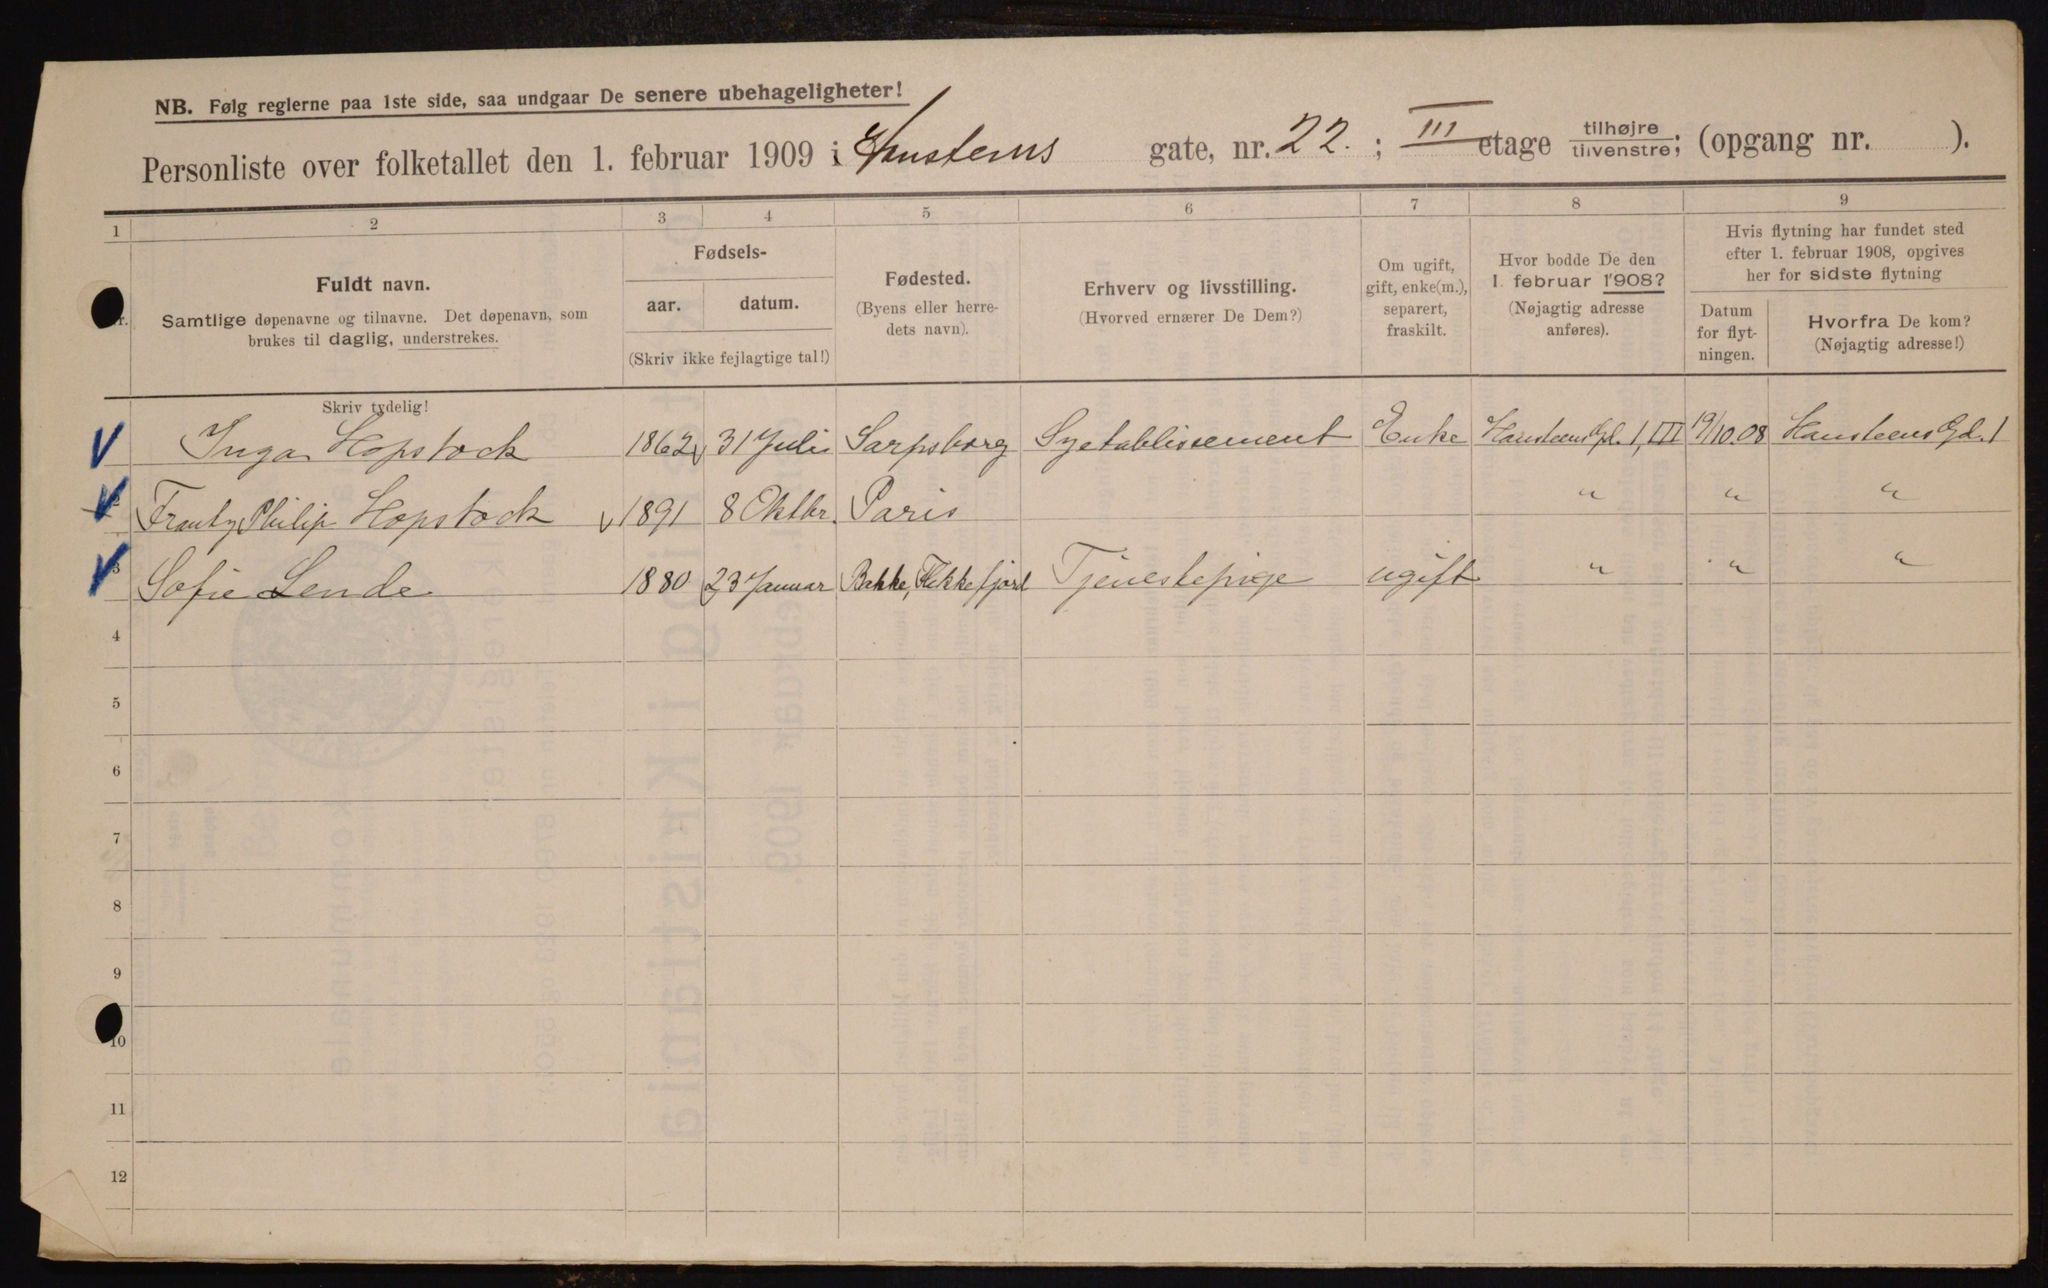 NB. Følg reglerne paa 1ste side, saa undgaar De senere ubehageligheter!
Personliste over folketallet den 1. februar 1909 i Hansteens gate, nr. 22. ; III etage tilhøjre tilvenstre; (opgang nr. ).
1 2 3 4 5 6 7 8 9
Nr.
Fuldt navn.
Samtlige døpenavne og tilnavne. Det døpenavn, som
brukes til daglig, understrekes.
Skriv tydelig!
Fødsels-
aar. datum.
(Skriv ikke fejlagtige tal!)
Fødested.
(Byens eller herre-
dets navn).
Erhverv og livsstilling.
(Hvorved ernærer De Dem?)
Om ugift,
gift, enke(m.),
separert,
fraskilt.
Hvor bodde De den
1. februar 1908?
(Nøjagtig adresse
anføres).
Hvis flytning har fundet sted
efter 1. februar 1908, opgives
her for sidste flytning
Datum
for flyt-
ningen.
Hvorfra De kom?
(Nøjagtig adresse!)
Inga Hopstock 1862 31 Juli Sarpsborg Syetablissement Enke Hansteens Gd. 1, III 19/10.08 Hansteens Gd. 1
Philip Hopstock 1891 8 Oktbr. Paris " " "
3 Sofie Lende 1880 23 Januar Bakke, Flekkefjord Tjenestepige ugift " " "
4
5
6
7
8
9
10
11
12